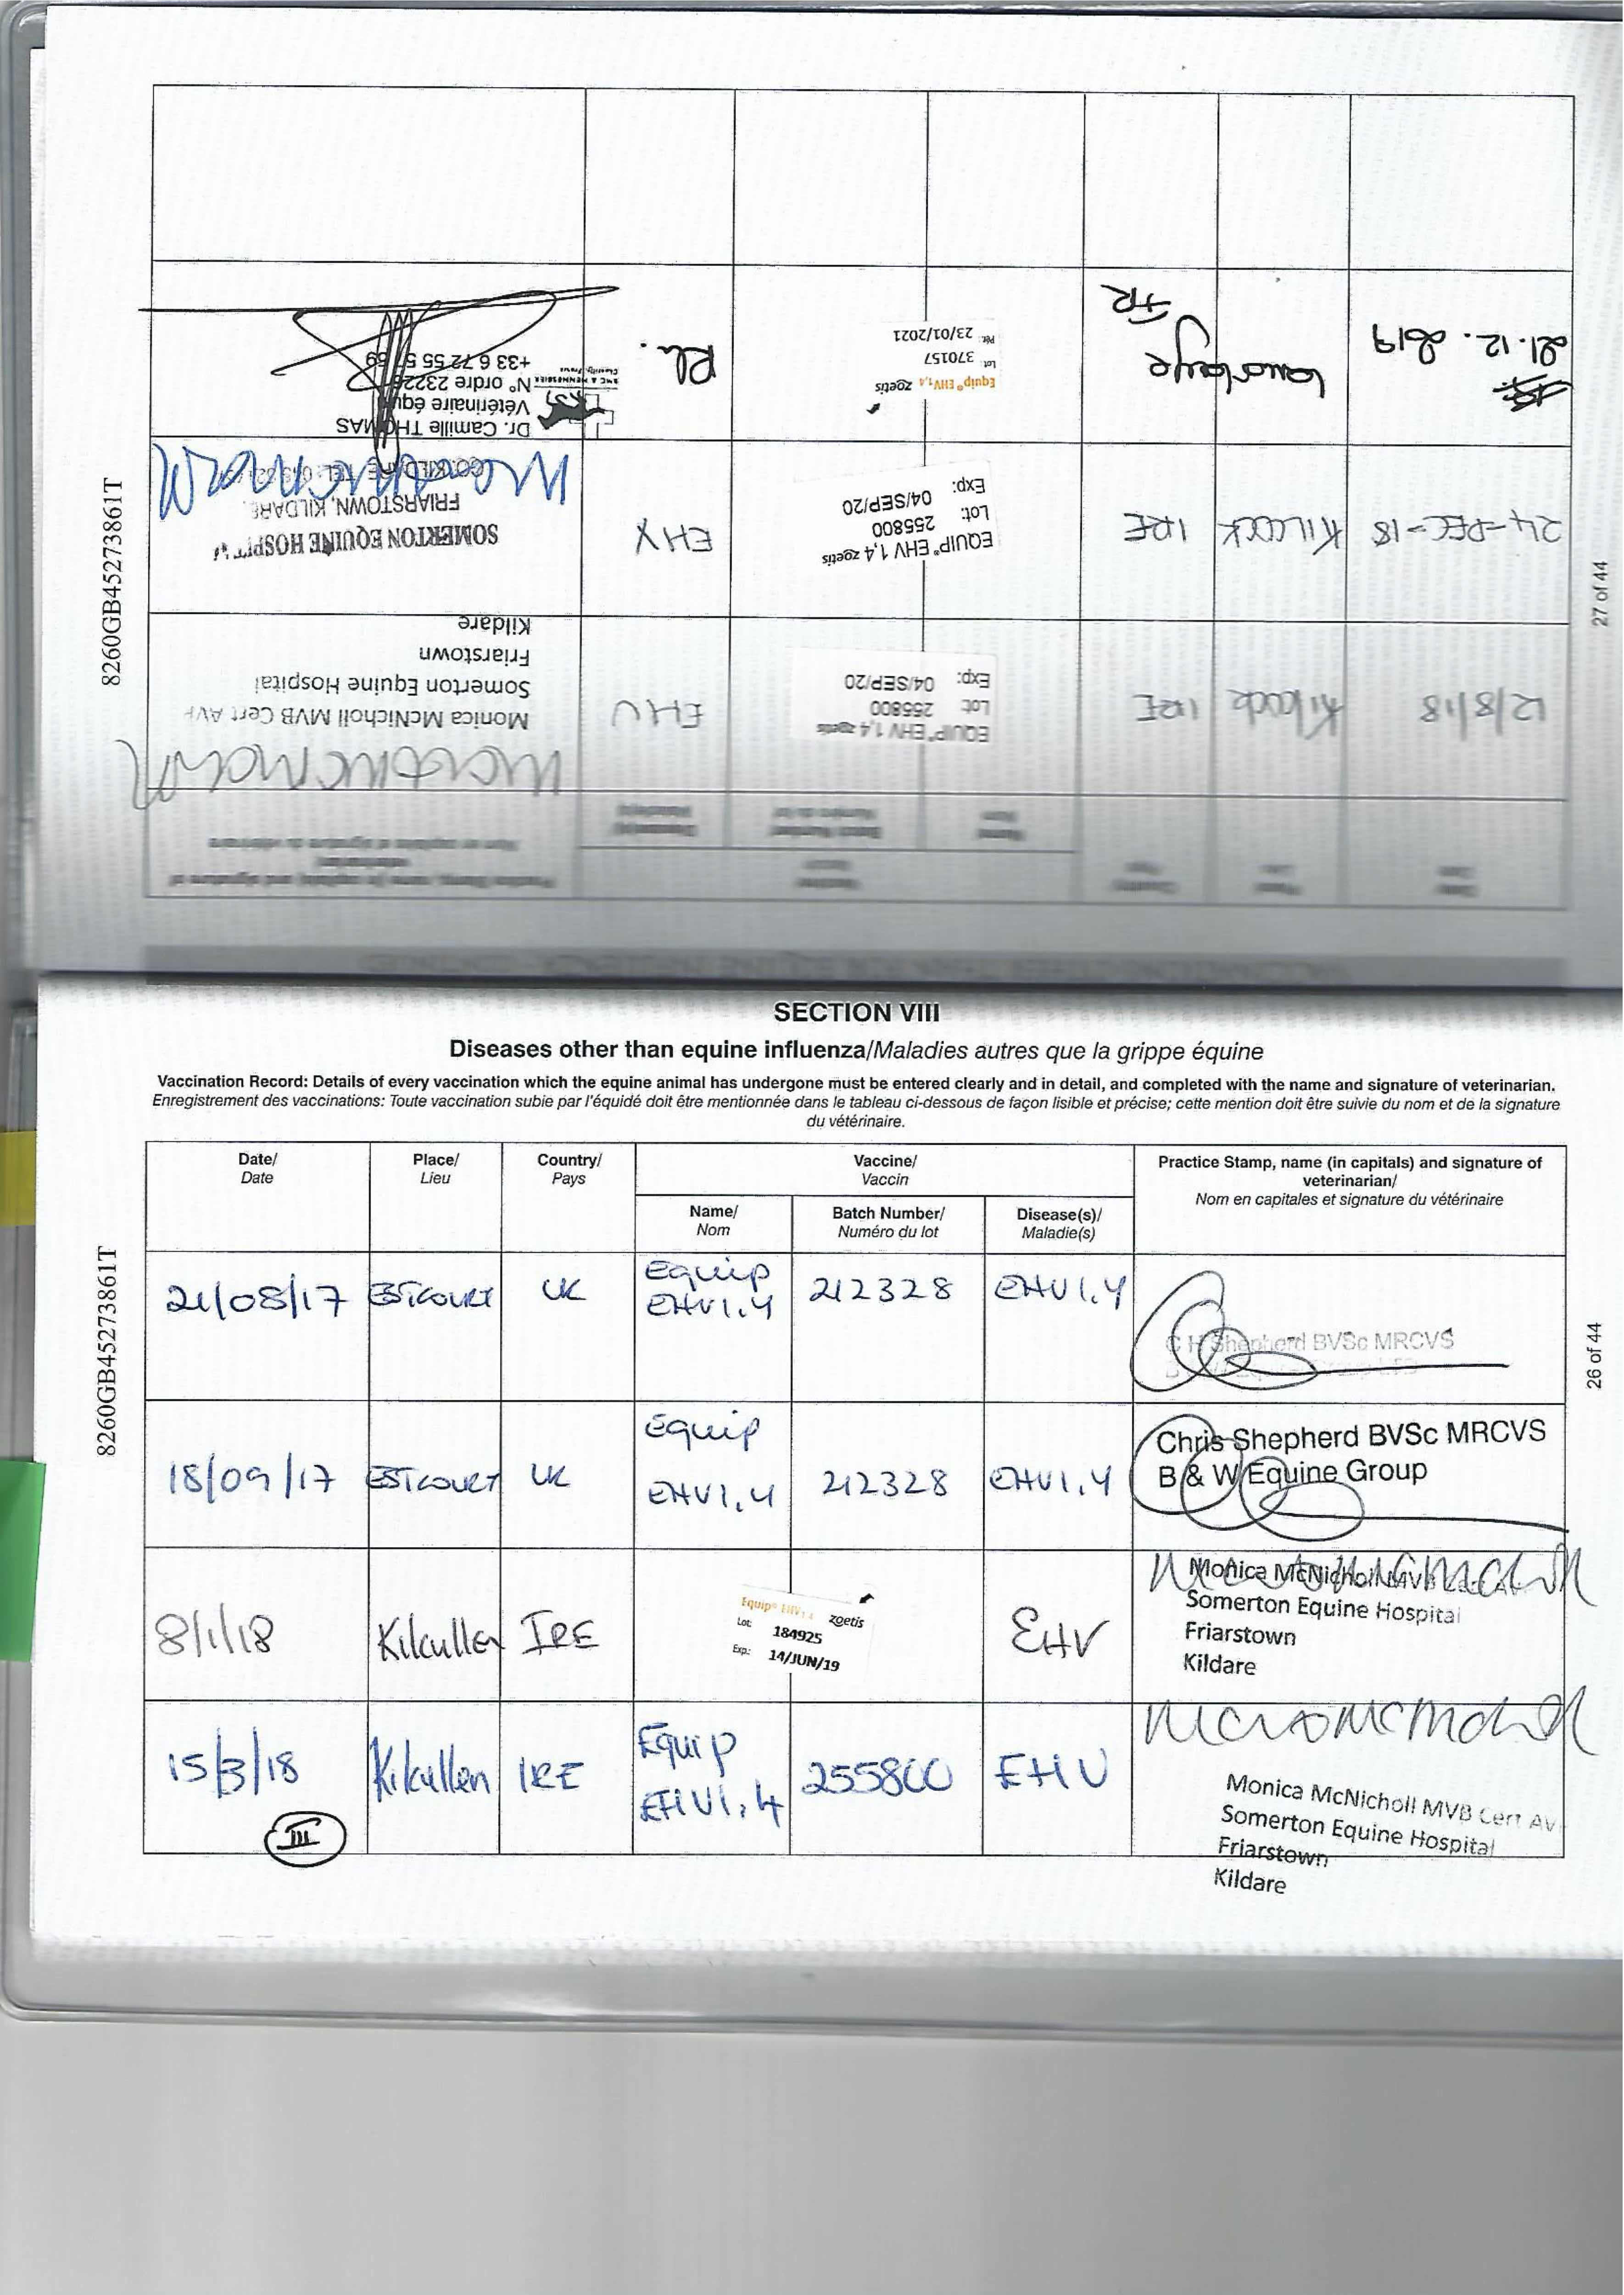 SECTION VIII
Diseases other than equine influenza/Maladies autres que la grippe équine
Vaccination Record: Details of every vaccination which the equine animal has undergone must be entered clearly and in detail, and completed with the name and signature of veterinarian.
Enregistrement des vaccinations: Toute vaccination subie par l'équidé doit être mentionnée dans le tableau ci-dessous de façon lisible et précise; cette mention doit être suivie du nom et de la signature
du vétérinaire.
Date/ Place/ Country/ Vaccine/ Practice Stamp, name (in capitals) and signature of
Date Lieu Pays Vaccin veterinarian/
Nom en capitales et signature du vétérinaire
Name/ Batch Number/ Disease(s)/
Nom Numéro du lot Maladie(s)
21/08/17 ESTCOURT UK Equip EHV1,4 212328 EHV1,4
C H Shepherd BVSc MRCVS
18/09/17 ESTCOURT UK Equip EHV1,4 212328 EHV1,4
Chris Shepherd BVSc MRCVS
B & W Equine Group
8/1/18 Kilcullen IRE
Equip® EHV1,4 zoetis
Lot: 184925
Exp: 14/JUN/19
EHV
Monica McNicholl MVB Cert AV
Somerton Equine Hospital
Friarstown
Kildare
15/3/18 Kilcullen IRE Equip EHV1,4 255800 EHV
III
Monica McNicholl MVB Cert AV
Somerton Equine Hospital
Friarstown
Kildare
8260GB45273861T
26 of 44
12/8/18 Kilcock IRE
EQUIP® EHV 1,4 zoetis
Lot: 255800
Exp: 04/SEP/20
EHV
Monica McNicholl MVB Cert AVP
Somerton Equine Hospital
Friarstown
Kildare
24-DEC-18 KILCOCK IRE
EQUIP® EHV 1,4 zoetis
Lot: 255800
Exp: 04/SEP/20
EHV
SOMERTON EQUINE HOSPITAL
FRIARSTOWN, KILDARE
21.12.2019 FR
Equip® EHV1,4 zoetis
Lot: 370157
Pér: 23/01/2021
Rh.
Dr. Camille THOMAS
Vétérinaire équin
N° ordre 23226
8260GB45273861T
27 of 44